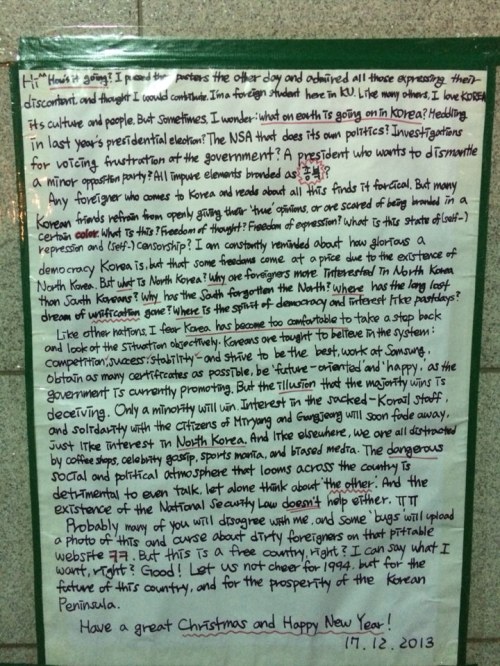 Hi^^ How's it going? I passed the posters the other day and admired all those expressing their
discontent, and thought I would contribute. I'm a foreign student here in KU. Like many others, I love KOREA
its culture and people. But Sometimes, I wonder: what on earth is going on in KOREA? Meddling
in last year's presidential election? The NSA that does its own politics? Investigations
for voicing frustration at the government? A president who wants to dismantle
a minor opposition party? All impure elements branded as 종북?
Any foreigner who comes to Korea and reads about all this finds it farcical. But many
Korean friends refrain from openly giving their 'true' opinions, or are scared of being branded in a
certain color. What is this? Freedom of thought? Freedom of expression? What is this state of (self-)
repression and (self-) censorship? I am constantly reminded about how glorious a
democracy Korea is, but that some freedoms come at a price due to the existence of
North Korea. But what is North Korea? Why are foreigners more interested in North Korea
than South Koreans? Why has the South forgotten the North? Where has the long lost
dream of unification gone? Where is the spirit of democracy and interest like pastdays?
Like other nations, I fear Korea has become too comfortable to take a step back
and look at the situation objectively. Koreans are taught to believe in the system:
competition, success, stability - and strive to be the best, work at Samsung,
obtain as many certificates as possible, be 'future-oriented and 'happy', as the
government is currently promoting. But the illusion that the majority wins is
deceiving. Only a minority will win. Interest in the sacked-Korail staff,
and solidarity with the citizens of Miryang and Gangjeong will soon fade away,
just like interest in North Korea. And like elsewhere, we are all distracted
by coffee shops, celebrity gossip, sports mania, and biased media. The dangerous
social and political atmosphere that looms across the country is
detrimental to even talk, let alone think about 'the other'. And the
existence of the National Security Law doesn't help either. ㅠㅠ
Probably many of you will disagree with me, and some 'bugs' will upload
a photo of this and curse about dirty foreigners on that pitiable
website ㅋㅋ. But this is a free country, right? I can say what I
want, right? Good! Let us not cheer for 1994, but for the
future of this country, and for the prosperity of the Korean
Peninsula.
Have a great Christmas and Happy New Year!
17.12.2013